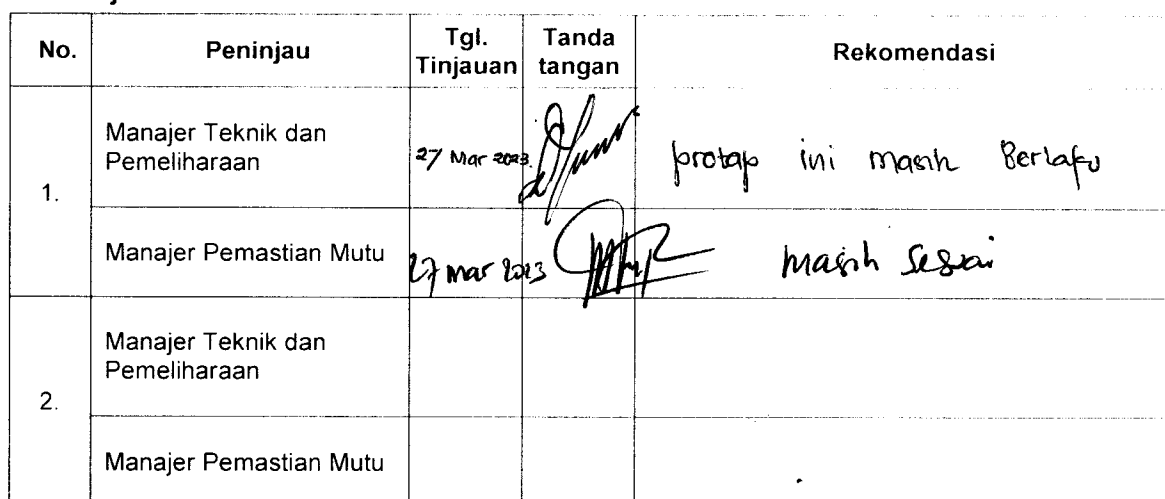 No. Peninjau Tgl. Tinjauan Tanda tangan Rekomendasi
1.
Manajer Teknik dan Pemeliharaan 27 Mar 2023 protap ini masih Berlaku
Manajer Pemastian Mutu 27 Mar 2023 masih sesuai
2.
Manajer Teknik dan Pemeliharaan
Manajer Pemastian Mutu